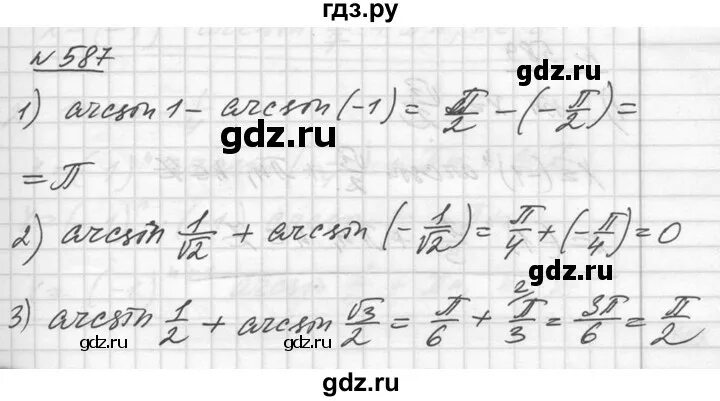 гдз.ру
№ 587
gdz.ru
1) arcsin 1 - arcsin (-1) = π/2 - (-π/2) =
= π
gdz.ru
2) arcsin 1/√2 + arcsin (-1/√2) = π/4 + (-π/4) = 0
gdz.ru gdz.ru
3) arcsin 1/2 + arcsin √3/2 = π/6 + π/3 ² = 3π/6 = π/2
gdz.ru gdz.ru
gdz.ru